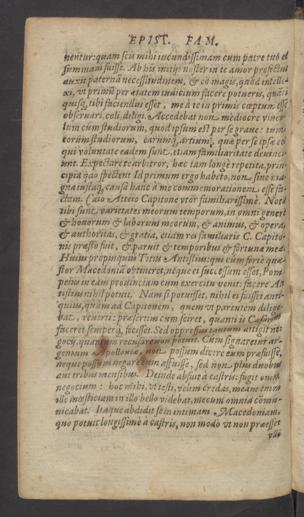 EPIST. FAM.
nentur: quam scis mihi iucundissimam cum patre tuo et
summam fuisse. Ab his initijs noster in te amor profectus
auxit paternā necessitudinem, & eò magis, quòd intelle-
xi, ut primùm per ætatem iudicium facere potueris, quāti
quisq; tibi faciendus esset, me à te in primis cœptum esse
obseruari, coli, diligi. Accedebat non mediocre vincu-
lum cùm studiorum, quod ipsum est per se graue: tum
eorum studiorum, earumq́; artium, quæ per se ipsæ eos
qui voluntate eadem sunt, etiam familiaritate deuinci-
unt. Expectare te arbitror, hæc tam longè repetita prin-
cipia quò spectent. Id primum ergo habeto, non sine ma-
gna iustaq́; causa hanc à me commemorationem esse fa-
ctam. Caio Atteio Capitone vtor familiarissimè. Notæ
tibi sunt varietates meorum temporum, in omni genere
& honorum & laborum meorum, & animus, & opera,
& authoritas, & gratia, etiam res familiaris C. Capito-
nis præsto fuit, & paruit & temporibus & fortunæ meæ.
Huius propinquus Titus Antistius: qui cùm sorte quæ-
stor Macedoniā obtineret, neque ei successum esset, Pom-
peius in eam prouinciam cum exercitu venit: facere An-
tistius nihil potuit. Nam si potuisset, nihil ei fuisset anti-
quius, quàm ad Capitonem, quem vt parentem dilige-
bat, reuerti: præsertim cùm sciret, quanti is Cæsarem
faceret semperq́; fecisset. Sed oppressus tantum attigit ne-
gocij, quantum recusare non potuit. Cùm signaretur ar-
gentum Apolloniæ, non possum dicere eum præfuisse,
neque possum negare eum affuisse, sed non plus duobus
aut tribus mensibus. Deinde absuit à castris: fugit omne
negotium: hoc mihi, vt testi, velim credas, meam enim
ille mœstitiam in illo bello videbat, mecum omnia cōmu-
nicabat. Itaque abdidit se in intimam Macedoniam,
quo potuit longissimè à castris, non modò vt non præesset